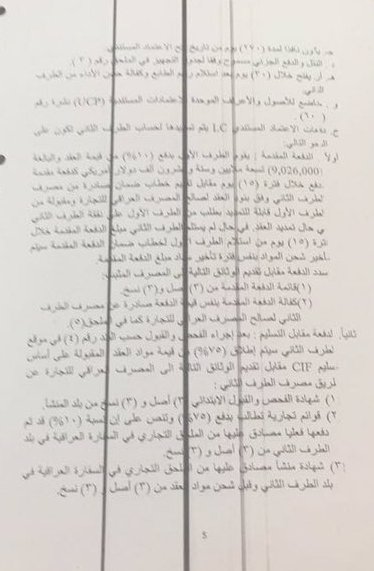 جـ. يكون نافذا لمدة (٢٧٠) يوم من تاريخ فتح الاعتماد المستندي.
د. النقل والدفع الجزئي مسموح وفقا لجدول التجهيز في الملحق رقم (٣).
هـ. أن يفتح خلال (٣٠) يوم بعد استلام رقم الطابع وكفالة حسن الأداء من الطرف
الثاني.
و. خاضع للأصول والأعراف الموحدة للاعتمادات المستندية (UCP) نشرة رقم
(٦٠٠).
ح. دفعات الاعتماد المستندي LC يتم تسديدها لحساب الطرف الثاني لكون على
النحو التالي:
اولاً الدفعة المقدمة: يقوم الطرف الأول بدفع (١٠%) من قيمة العقد والبالغة
(9,026,000) تسعة ملايين وستة وعشرون ألف دولار أمريكي كدفعة مقدمة
تدفع خلال فترة (١٥) يوم مقابل تقديم خطاب ضمان صادرة من مصرف
الطرف الثاني وفق بنود العقد لصالح المصرف العراقي للتجارة ومقبولة من
الطرف الأول قابلة للتمديد بطلب من الطرف الأول على نفقة الطرف الثاني
في حال تمديد العقد. في حال لم يستلم الطرف الثاني مبلغ الدفعة المقدمة خلال
فترة (١٥) يوم من استلام الطرف الأول لخطاب ضمان الدفعة المقدمة سيتم
تأخير شحن المواد بنفس فترة تأخير سداد مبلغ الدفعة المقدمة.
تسدد الدفعة مقابل تقديم الوثائق التالية الى المصرف المثبت:
١) قائمة الدفعة المقدمة من (٣) أصل و(٣) نسخ.
٢) كفالة الدفعة المقدمة بنفس قيمة الدفعة صادرة عن مصرف الطرف
الثاني لصالح المصرف العراقي للتجارة كما في الملحق(٥).
ثانياً. الدفعة مقابل التسليم: بعد إجراء الفحص والقبول حسب البند رقم (٤) في موقع
الطرف الثاني سيتم إطلاق (٧٥%) من قيمة مواد العقد المقبولة على أساس
تسليم CIF مقابل تقديم الوثائق التالية الى المصرف العراقي للتجارة عن
طريق مصرف الطرف الثاني:
١) شهادة الفحص والقبول الابتدائي (٣) أصل و (٣) نسخ من بلد المنشأ.
٢) قوائم تجارية تطالب بدفع (٧٥%) وتنص على إن نسبة (١٠%) قد تم
دفعها فعليا مصادق عليها من الملحق التجاري في السفارة العراقية في بلد
الطرف الثاني من (٣) أصل و (٣) نسخ.
٣) شهادة منشأ مصادق عليها من الملحق التجاري في السفارة العراقية في
بلد الطرف الثاني وقبل شحن مواد العقد من (٣) أصل و (٣) نسخ.
5